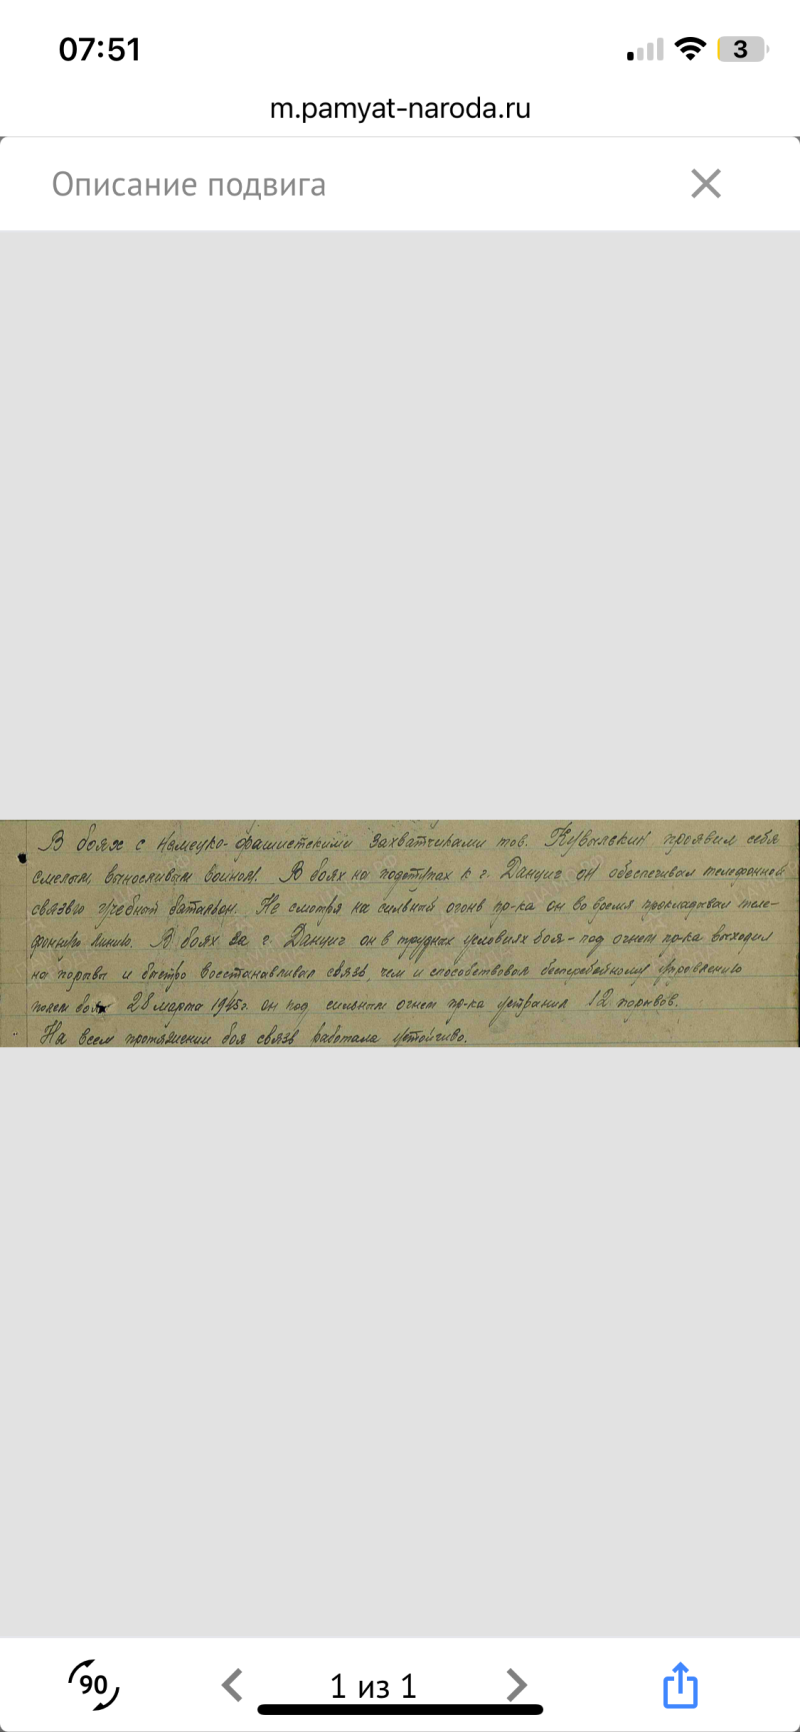 07:51
3
m.pamyat-naroda.ru
Описание подвига
В боях с немецко-фашистскими захватчиками тов. Кувылскин проявил себя
смелым, выносливым воином. В боях на подступах к г. Данциг он обеспечивал телефонной
связью учебный батальон. Не смотря на сильный огонь пр-ка он во время прокладывал теле-
фонную линию. В боях за г. Данциг он в трудных условиях боя - под огнем пр-ка выходил
на порывы и быстро восстанавливал связь, чем и способствовал бесперебойному управлению
боя 28 марта 1945г. он под сильным огнем пр-ка устранил 12 порывов.
На всем протяжении боя связь работала устойчиво.
90
1 из 1